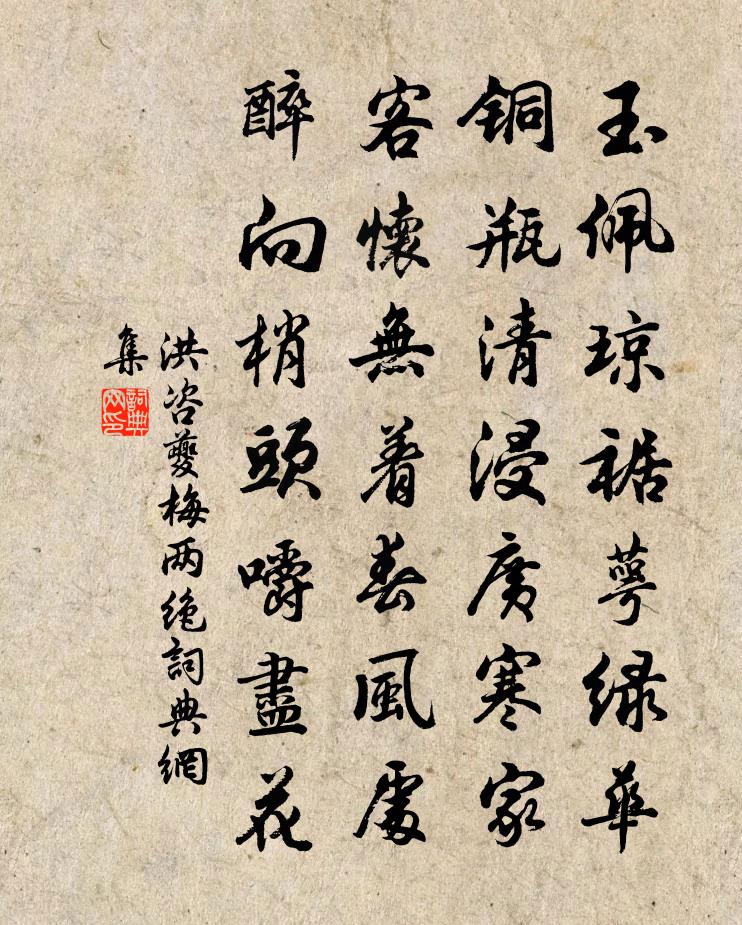 玉佩琼裾萼绿華
铜瓶清浸廣寒家
客懷無着春風處
醉向梢頭嚼盡花
洪咨夔梅两绝詞典網
集
詞典
网印